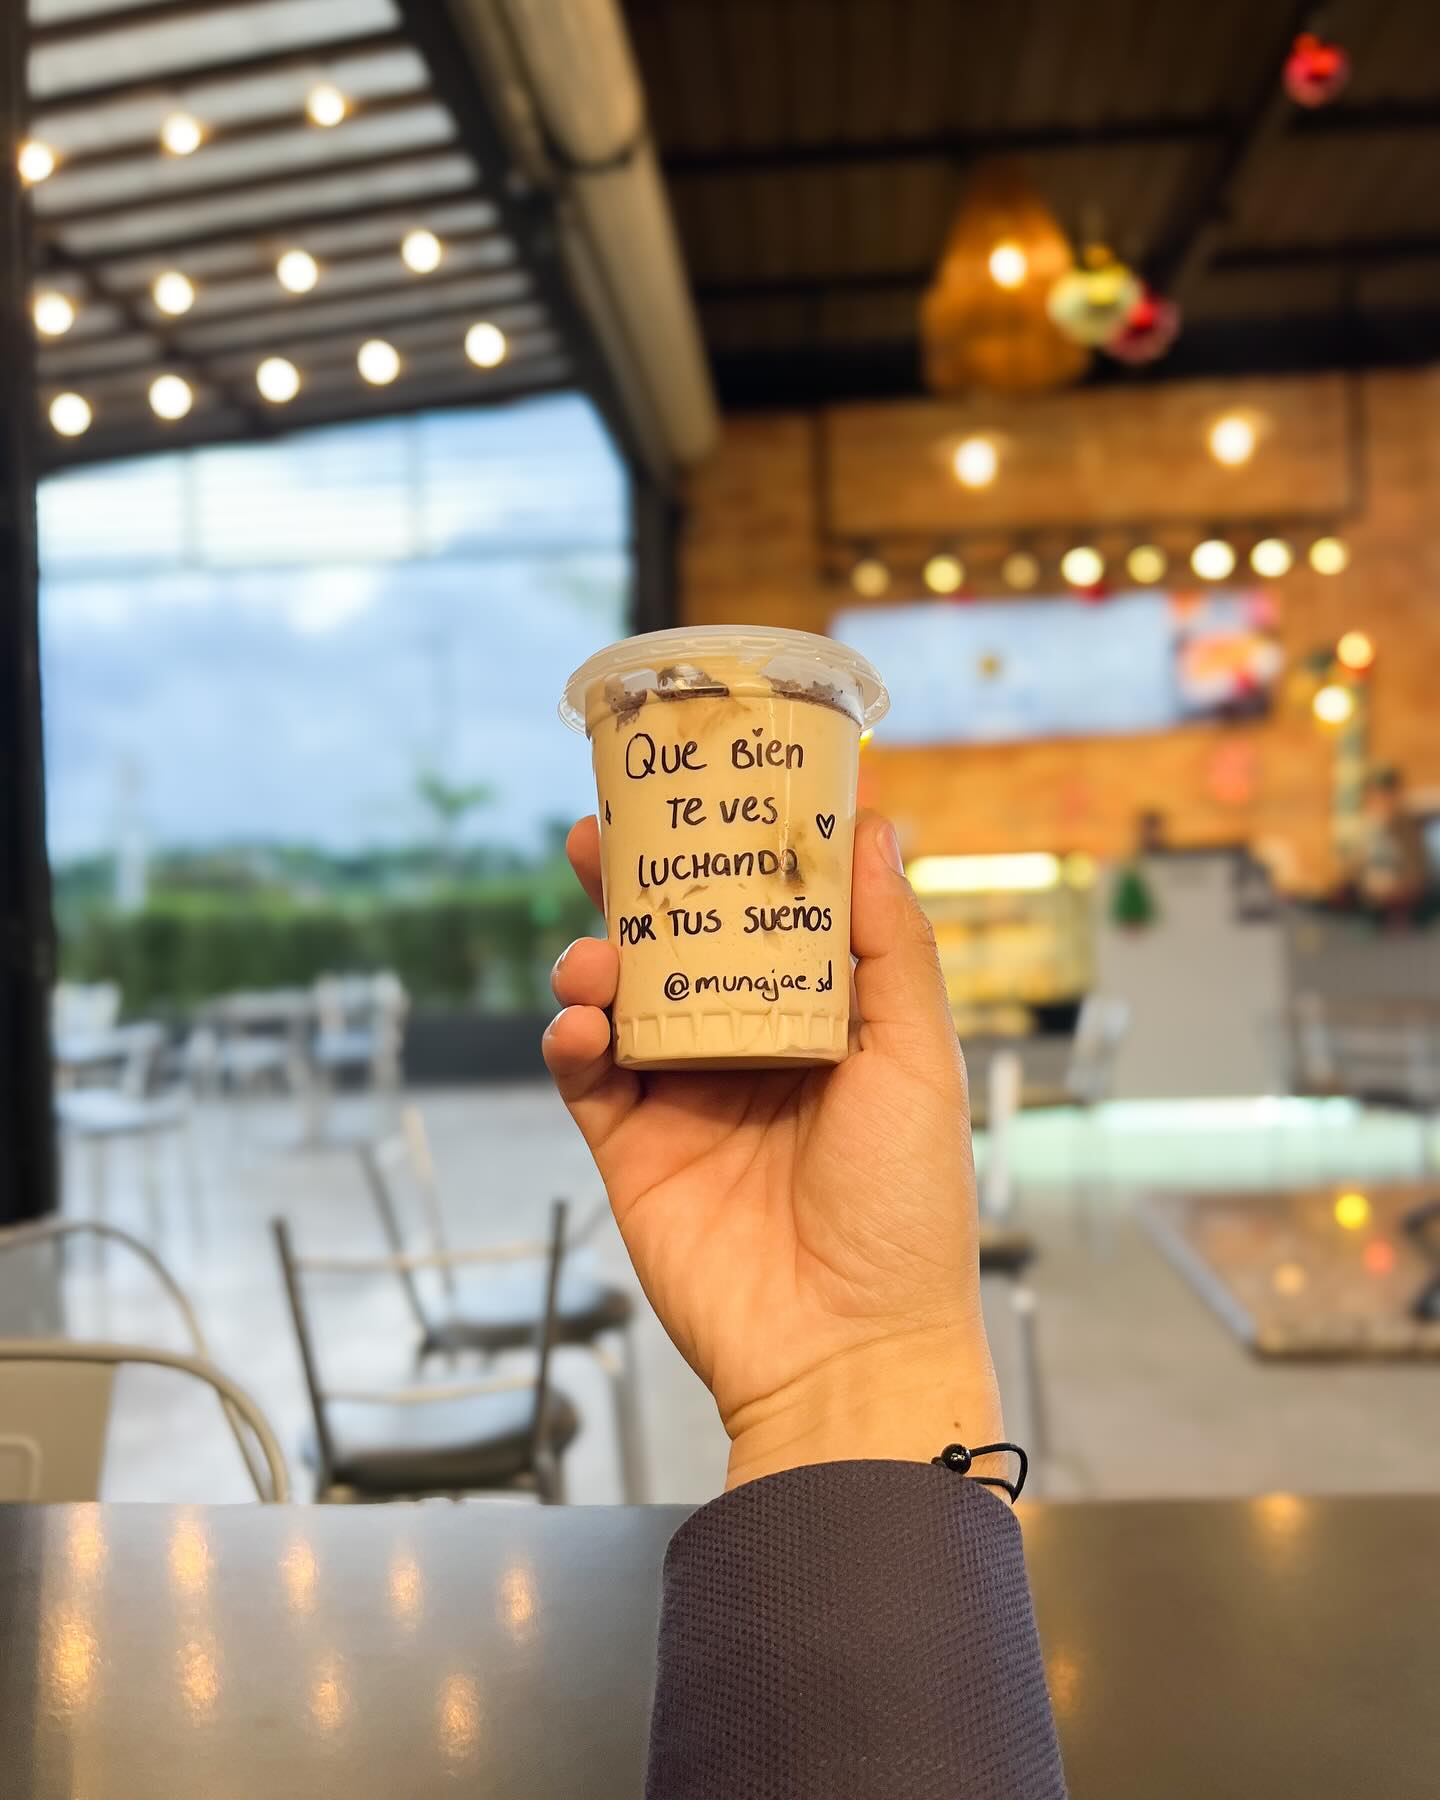 Que Bien
te ves
luchando
por tus sueños
@munajae.sd